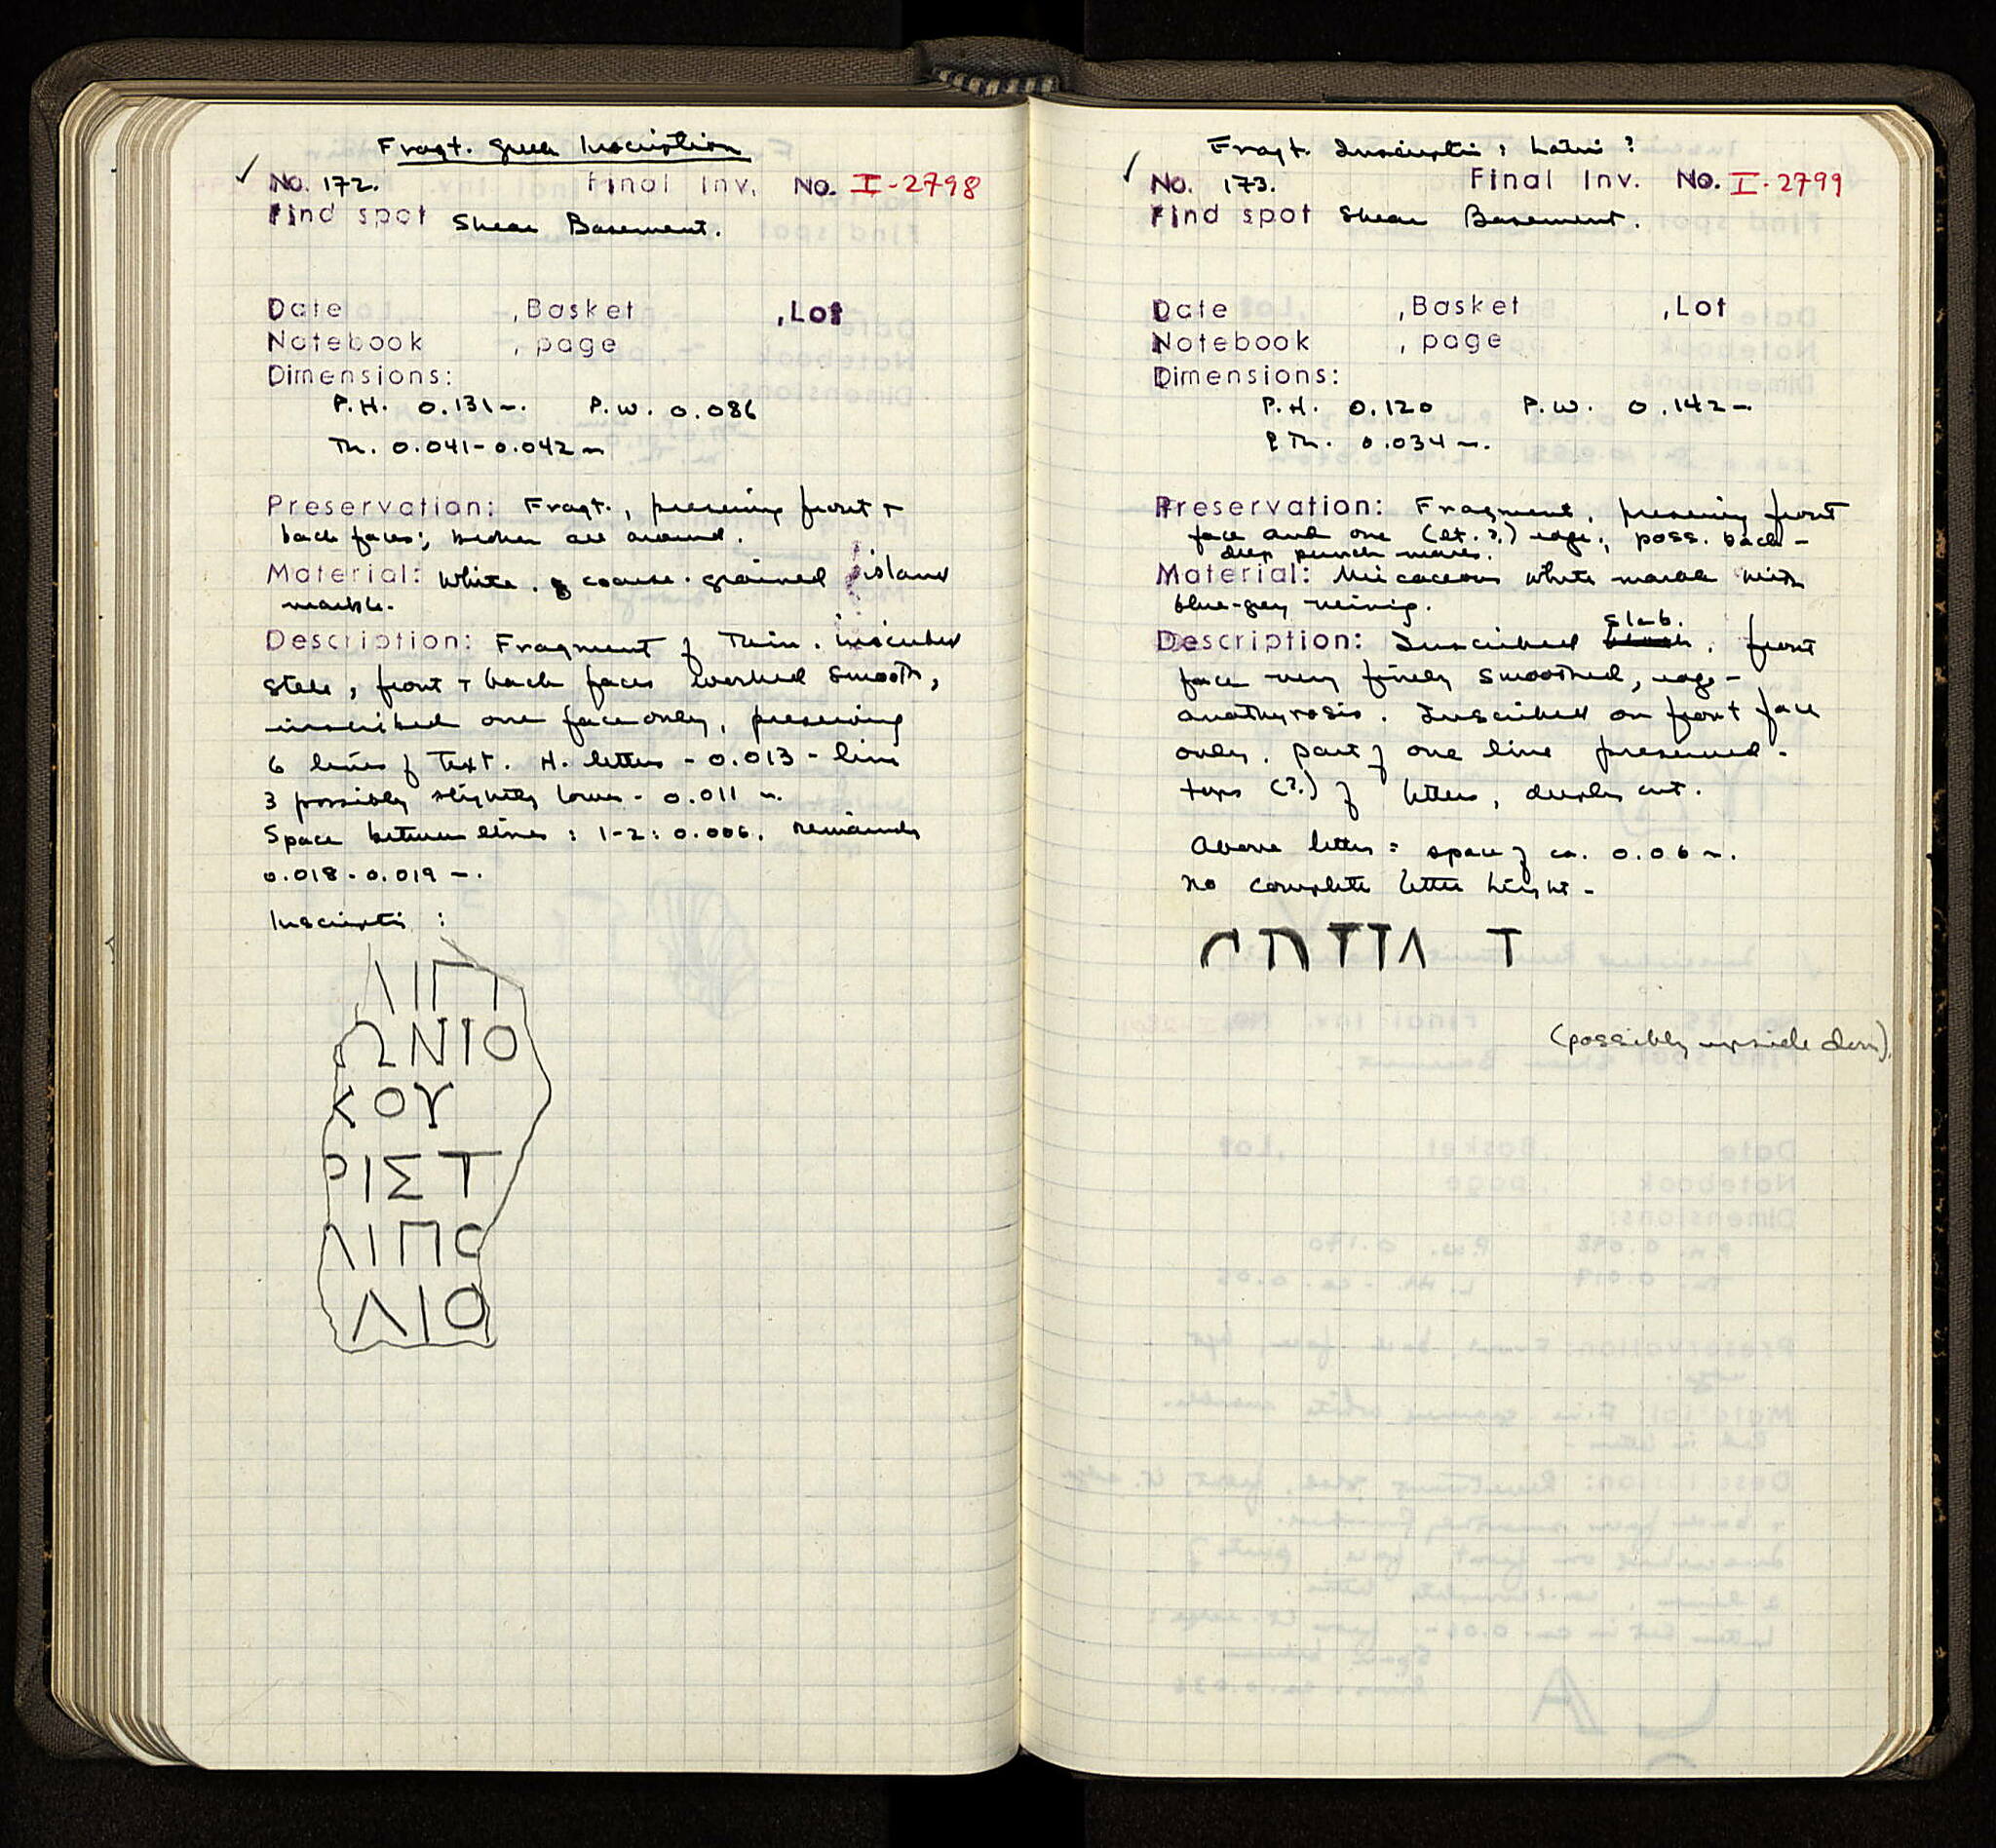 Fragt. Greek Inscription
✓ No. 172. Final Inv. No. I-2798
Find spot Shear Basement.
Date , Basket , Lot
Notebook , page
Dimensions:
P.H. 0.131 m. P.W. 0.086
Th. 0.041-0.042 m
Preservation: Fragt., preserving front +
back faces; broken all around.
Material: White, coarse-grained island
marble.
Description: Fragment of thin, inscribed
stele, front + back faces worked smooth,
inscribed one face only, preserving
6 lines of text. H. letters - 0.013 - line
3 possibly slightly lower - 0.011 m.
Space between lines: 1-2: 0.006, remainder
0.018-0.019 m.
Inscription:
ΛΙΓΤ
ΩΝΙΟ
ΚΟΥ
ΡΙΣΤ
ΛΙΠΟ
ΛΙΟ
Fragt. Inscription: Latin?
✓ No. 173. Final Inv. No. I-2799
Find spot Shear Basement.
Date , Basket , Lot
Notebook , page
Dimensions:
P.H. 0.120 P.W. 0.142 m.
P.Th. 0.034 m.
Preservation: Fragment, preserving front
face and one (lt.?) edge; poss. back -
deep punch marks.
Material: Micaceous white marble with
blue-grey veining.
Description: Inscribed slab, front
face very finely smoothed, edge -
anathyrosis. Inscribed on front face
only. Part of one line preserved -
tops (?) of letters, deeply cut.
Above letters = space of ca. 0.06 m.
No complete letter height -
(possibly upside down).